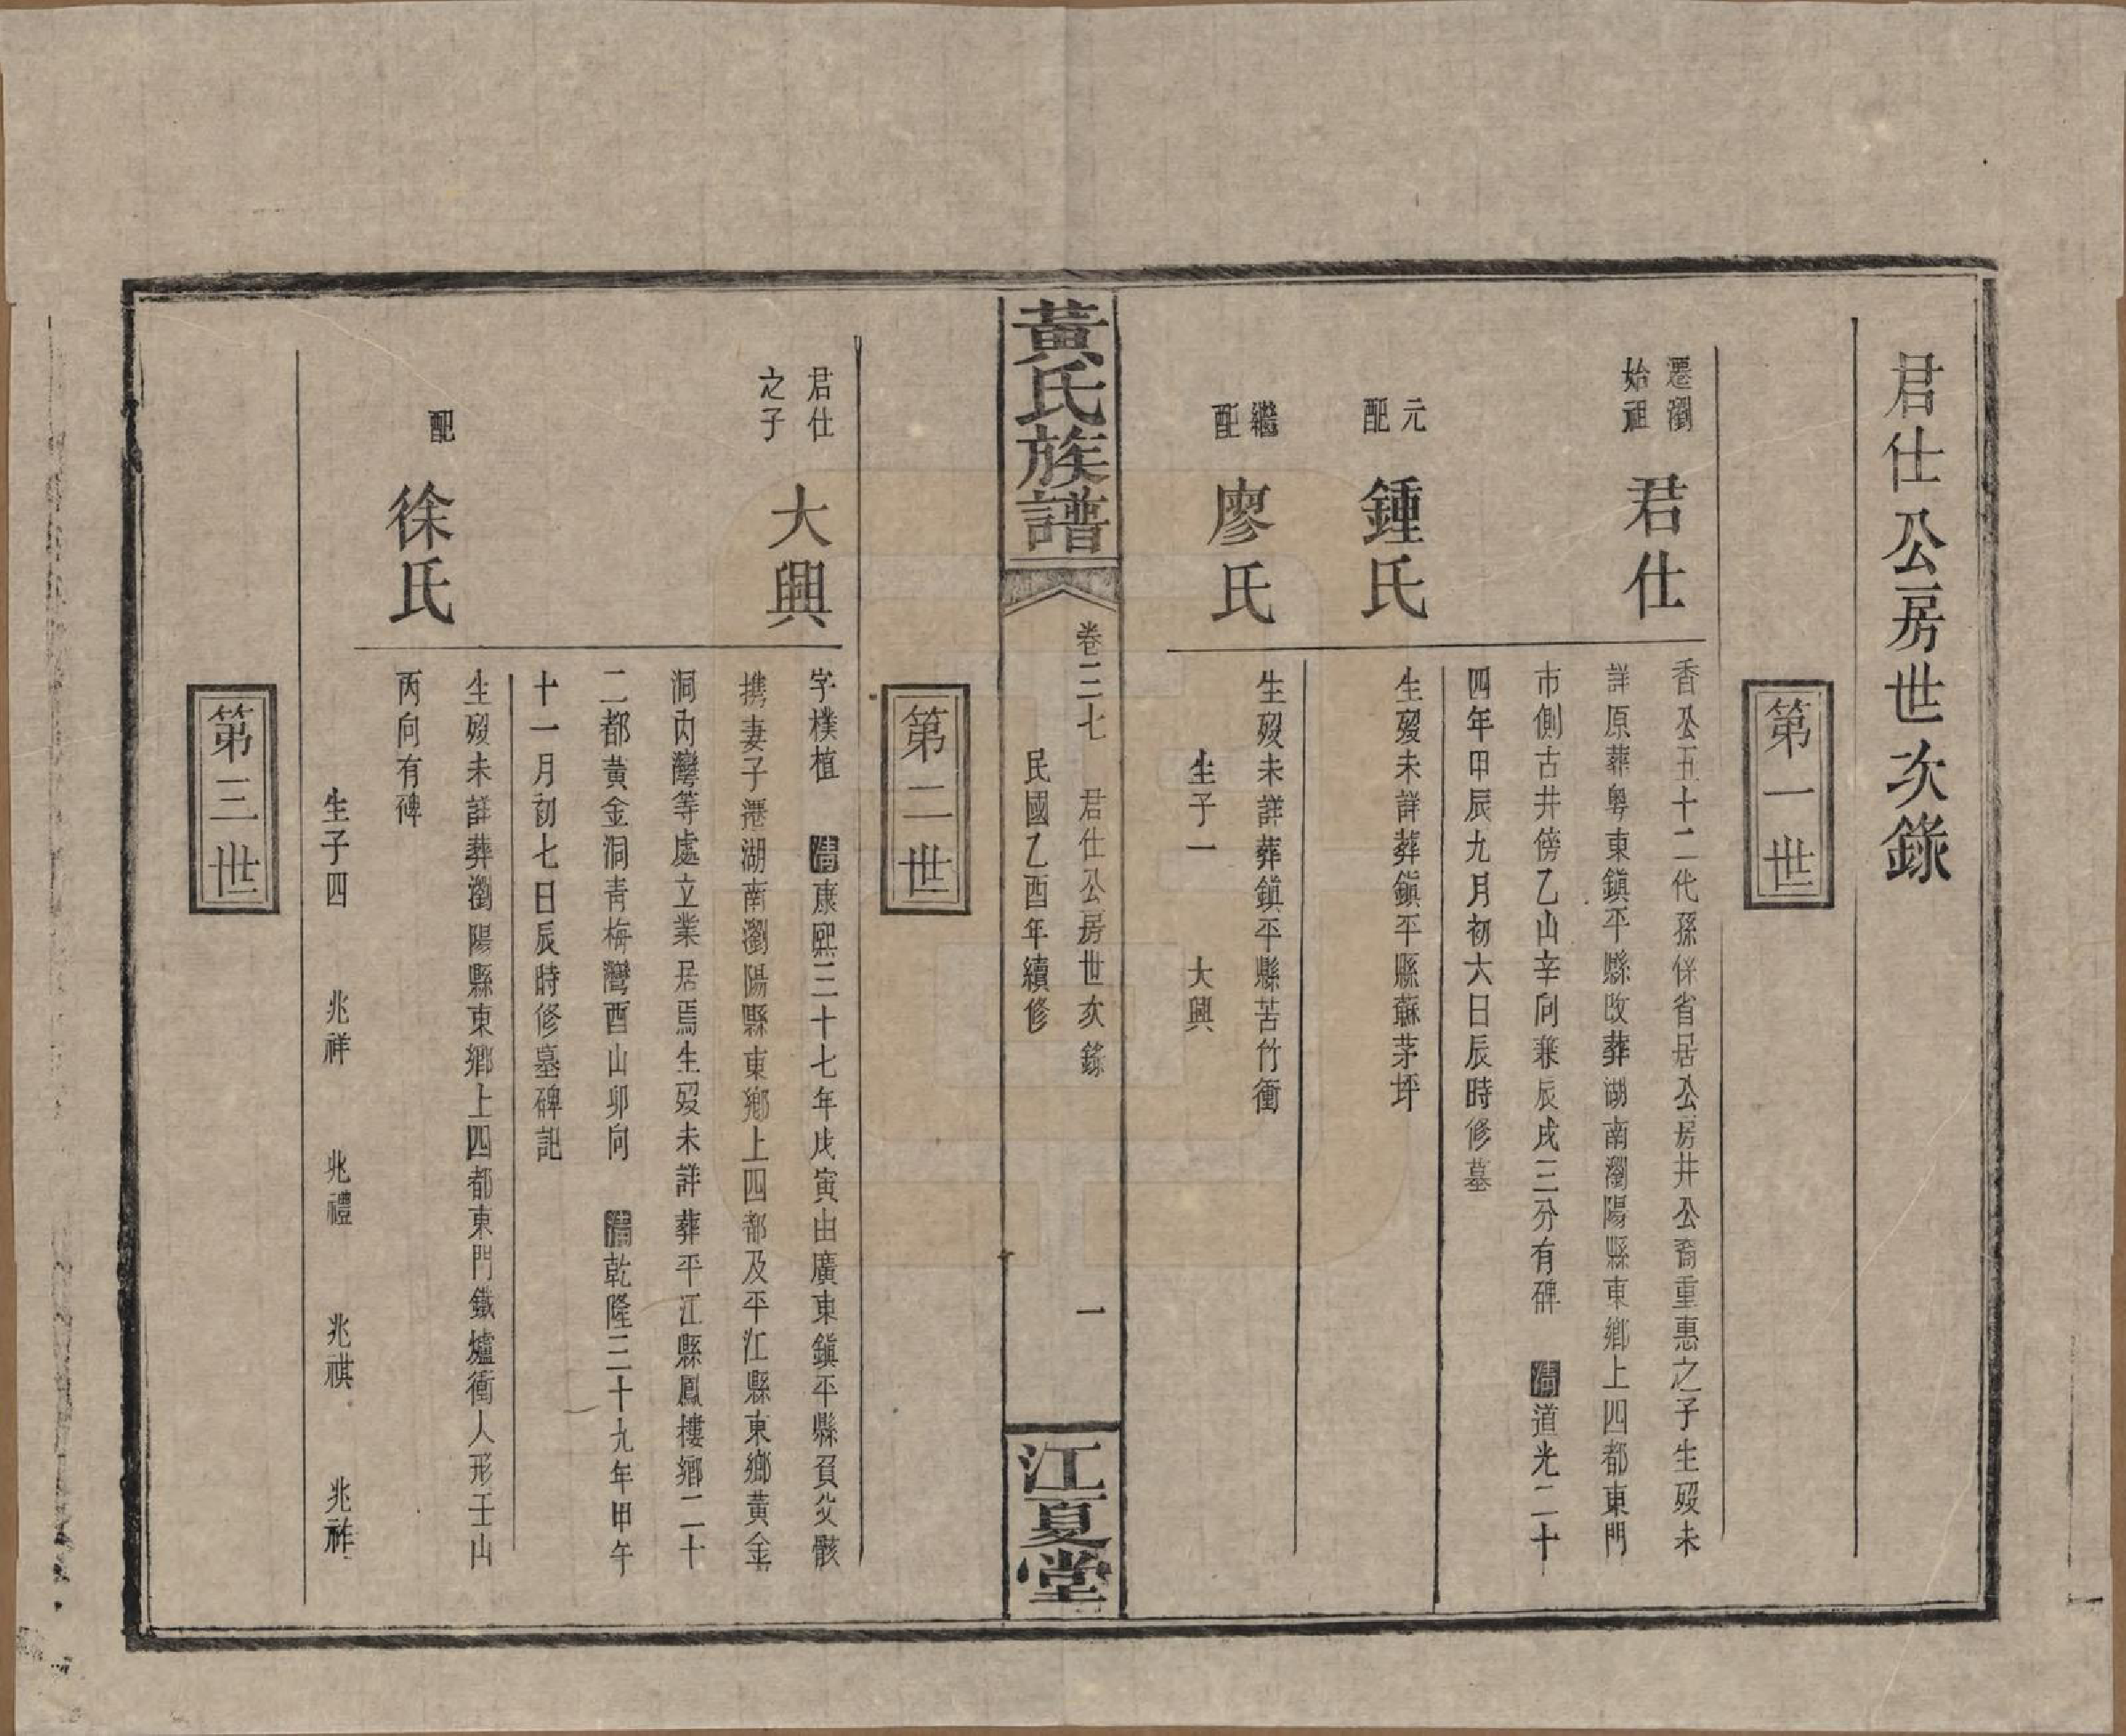 君仕公房世次錄
第一世
遷瀏
始祖
君仕
香公五十二代孫保省居公房井公裔重惠之子生歿未
詳原葬粵東鎮平縣改葬湖南瀏陽縣東鄉上四都東門
市側古井傍乙山辛向兼辰戌三分有碑 清道光二十
四年甲辰九月初六日辰時修墓
元
配
鍾氏
生歿未詳葬鎮平縣蘇茅坪
繼
配
廖氏
生歿未詳葬鎮平縣苦竹衝
生子一 大興
黃氏族譜
卷三七 君仕公房世次錄 一
民國乙酉年續修
江夏堂
第二世
君仕
之子
大興
字樸植 清康熙三十七年戊寅由廣東鎮平縣負父骸
携妻子遷湖南瀏陽縣東鄉上四都及平江縣東鄉黃金
洞內灣等處立業居焉生歿未詳葬平江縣鳳樓鄉二十
二都黃金洞青梅灣酉山卯向 清乾隆三十九年甲午
十一月初七日辰時修墓碑記
配
徐氏
生歿未詳葬瀏陽縣東鄉上四都東門鐵爐衝人形壬山
丙向有碑
生子四 兆祥 兆禮 兆祺 兆祚
第三世